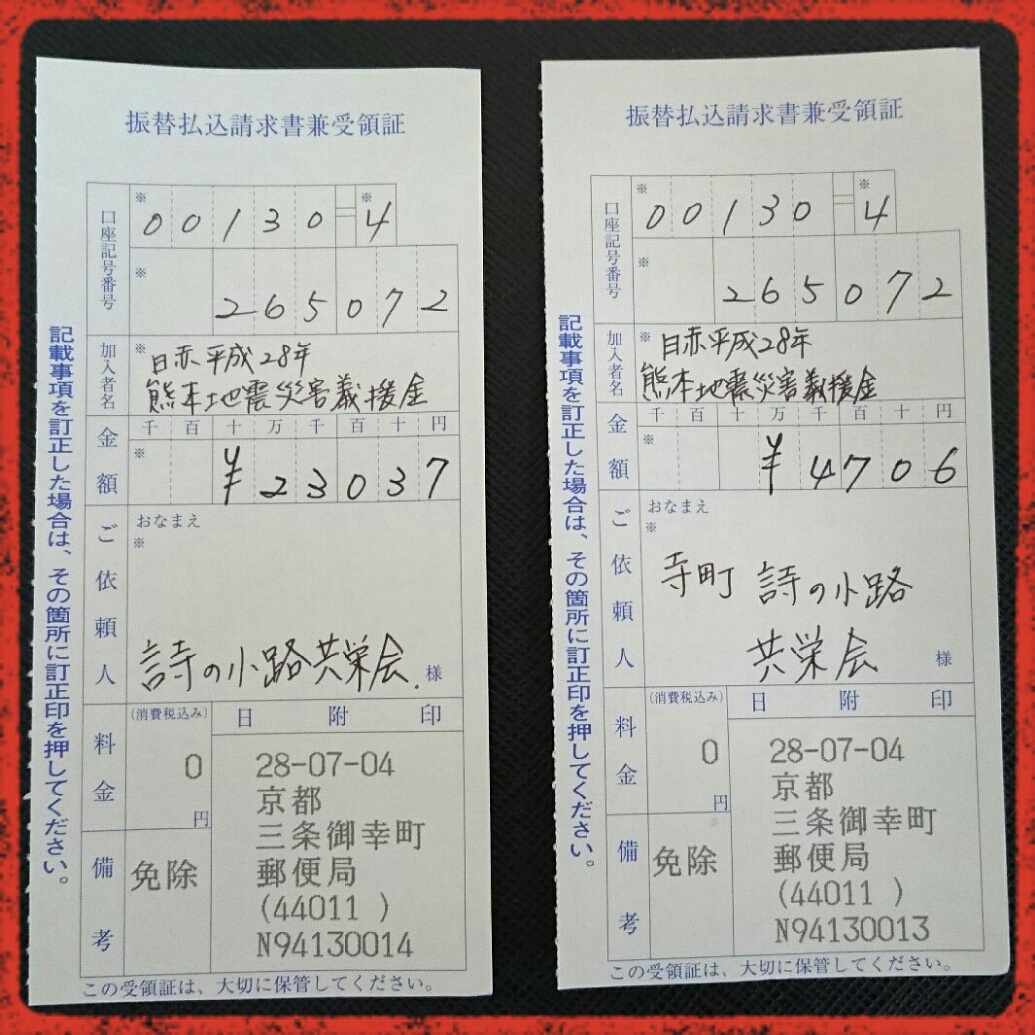 振替払込請求書兼受領証
口座記号番号
※ ※
00130-4
※
265072
加入者名
※日赤平成28年
熊本地震災害義援金
金額
千百十万千百十円
※
¥23037
ご依頼人
おなまえ
※
詩の小路共栄会. 様
料金
(消費税込み)
0
円
備考
免除
日附印
28-07-04
京都
三条御幸町
郵便局
(44011 )
N94130014
記載事項を訂正した場合は、その箇所に訂正印を押してください。
この受領証は、大切に保管してください。
振替払込請求書兼受領証
口座記号番号
※ ※
00130-4
※
265072
加入者名
※日赤平成28年
熊本地震災害義援金
金額
千百十万千百十円
※
¥4706
ご依頼人
おなまえ
※
寺町 詩の小路
共栄会 様
料金
(消費税込み)
0
円
備考
※
免除
日附印
28-07-04
京都
三条御幸町
郵便局
(44011 )
N94130013
記載事項を訂正した場合は、その箇所に訂正印を押してください。
この受領証は、大切に保管してください。